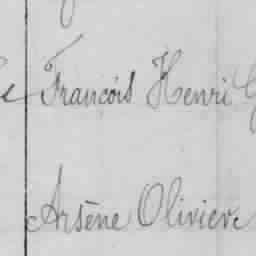 François Henri
Arsène Olivier